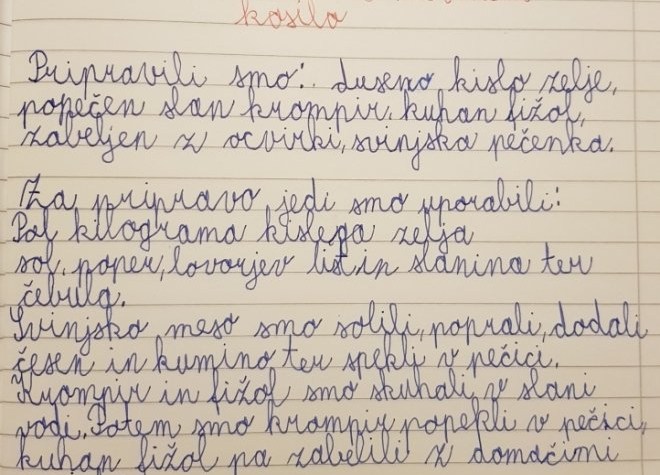 kosilo
Pripravili smo: duseno kislo zelje,
popečen slan krompir, kuhan fižol,
zabeljen z ocvirki, svinjska pečenka.
Za pripravo jedi smo uporabili:
Pol kilograma kislega zelja
sol, poper, lovorjev list in slanina ter
čebula.
Svinjsko meso smo solili, poprali, dodali
česen in kumino ter spekli v pečici.
Krompir in fižol smo skuhali v slani
vodi. Potem smo krompir popekli v pečici,
kuhan fižol pa zabelili z domačimi